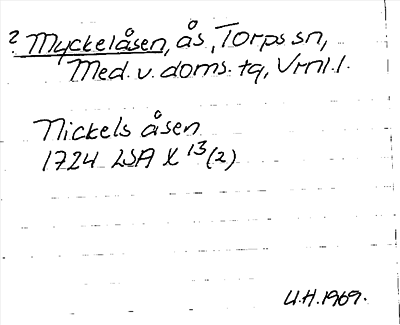 ? Myckelåsen, ås, Torps sn,
Med. v. doms. tg, Vrnl. l.
Nickels åsen
1724 LSA X 13(2)
U.H. 1969.